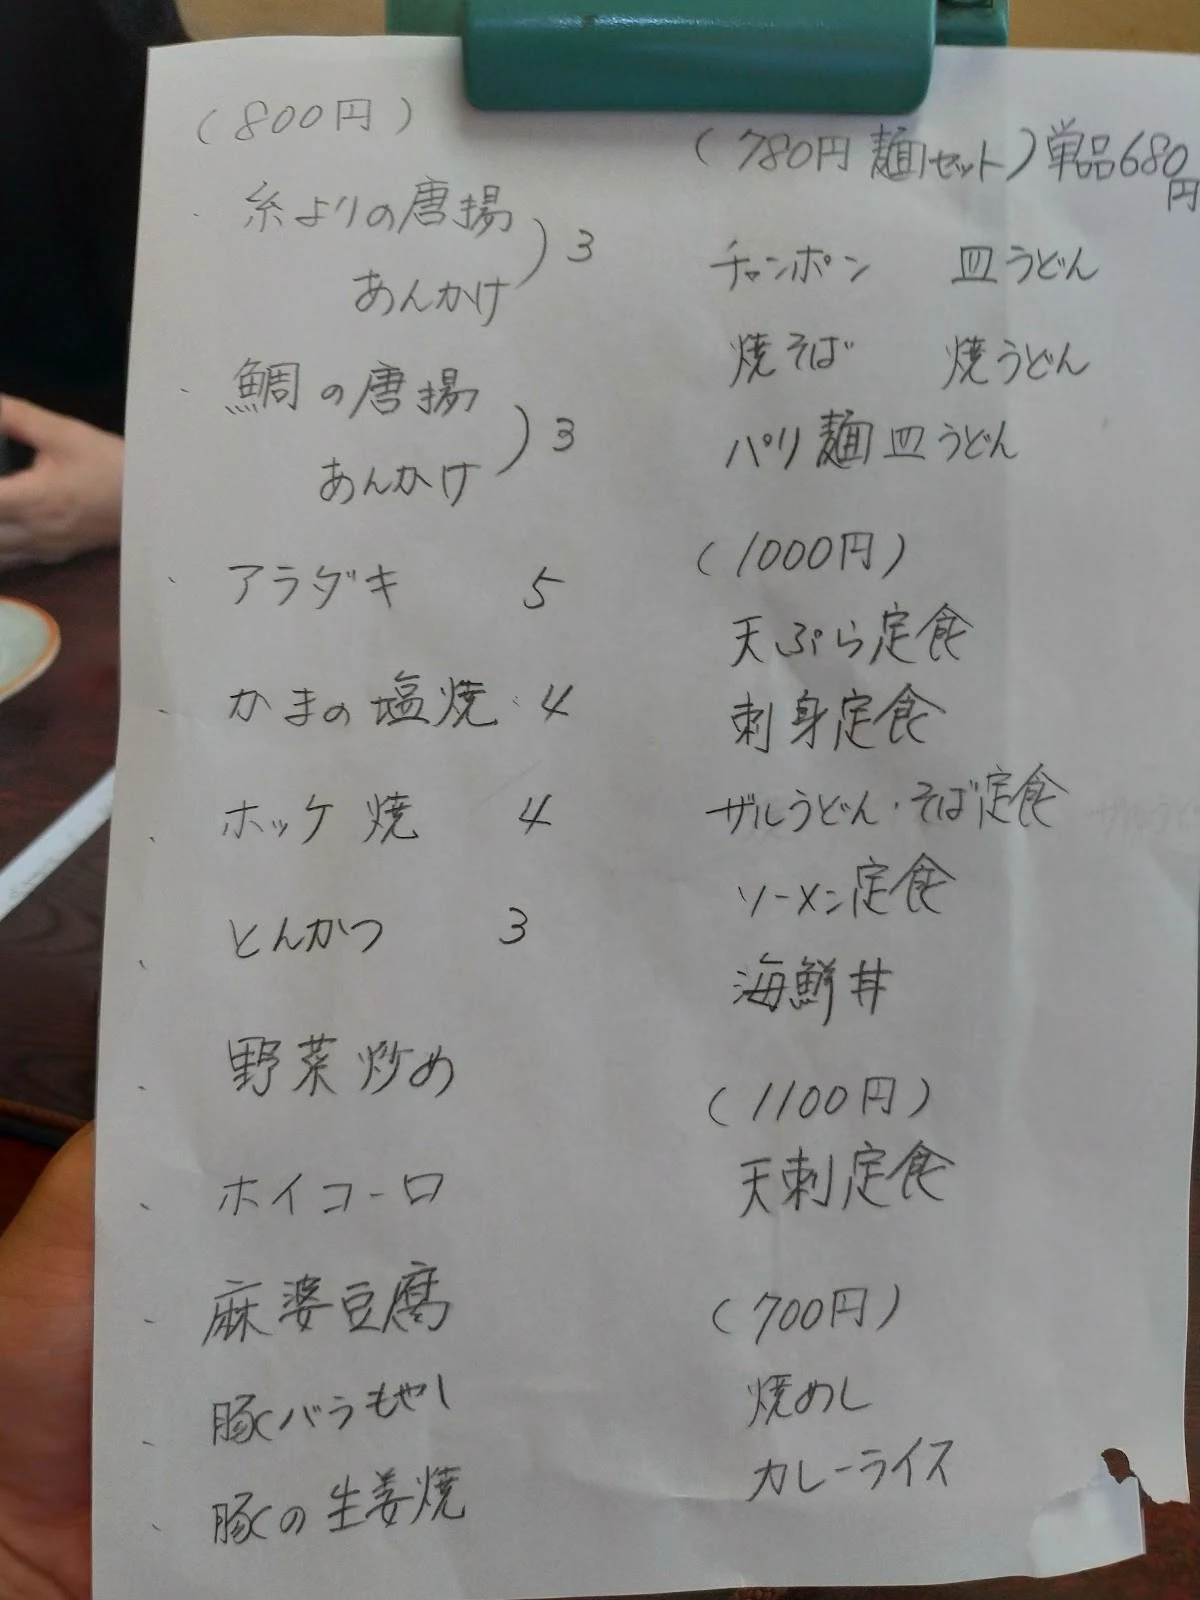 (800円)
糸よりの唐揚
あんかけ ) 3
鯛の唐揚
あんかけ ) 3
アラダキ 5
かまの塩焼 4
ホッケ焼 4
とんかつ 3
野菜炒め
ホイコーロ
麻婆豆腐
豚バラもやし
豚の生姜焼
(780円 麺セット) 単品680
円
チャンポン 皿うどん
焼そば 焼うどん
パリ麺皿うどん
(1000円)
天ぷら定食
刺身定食
ザルうどん・そば定食
ソーメン定食
海鮮丼
(1100円)
天刺定食
(700円)
焼めし
カレーライス